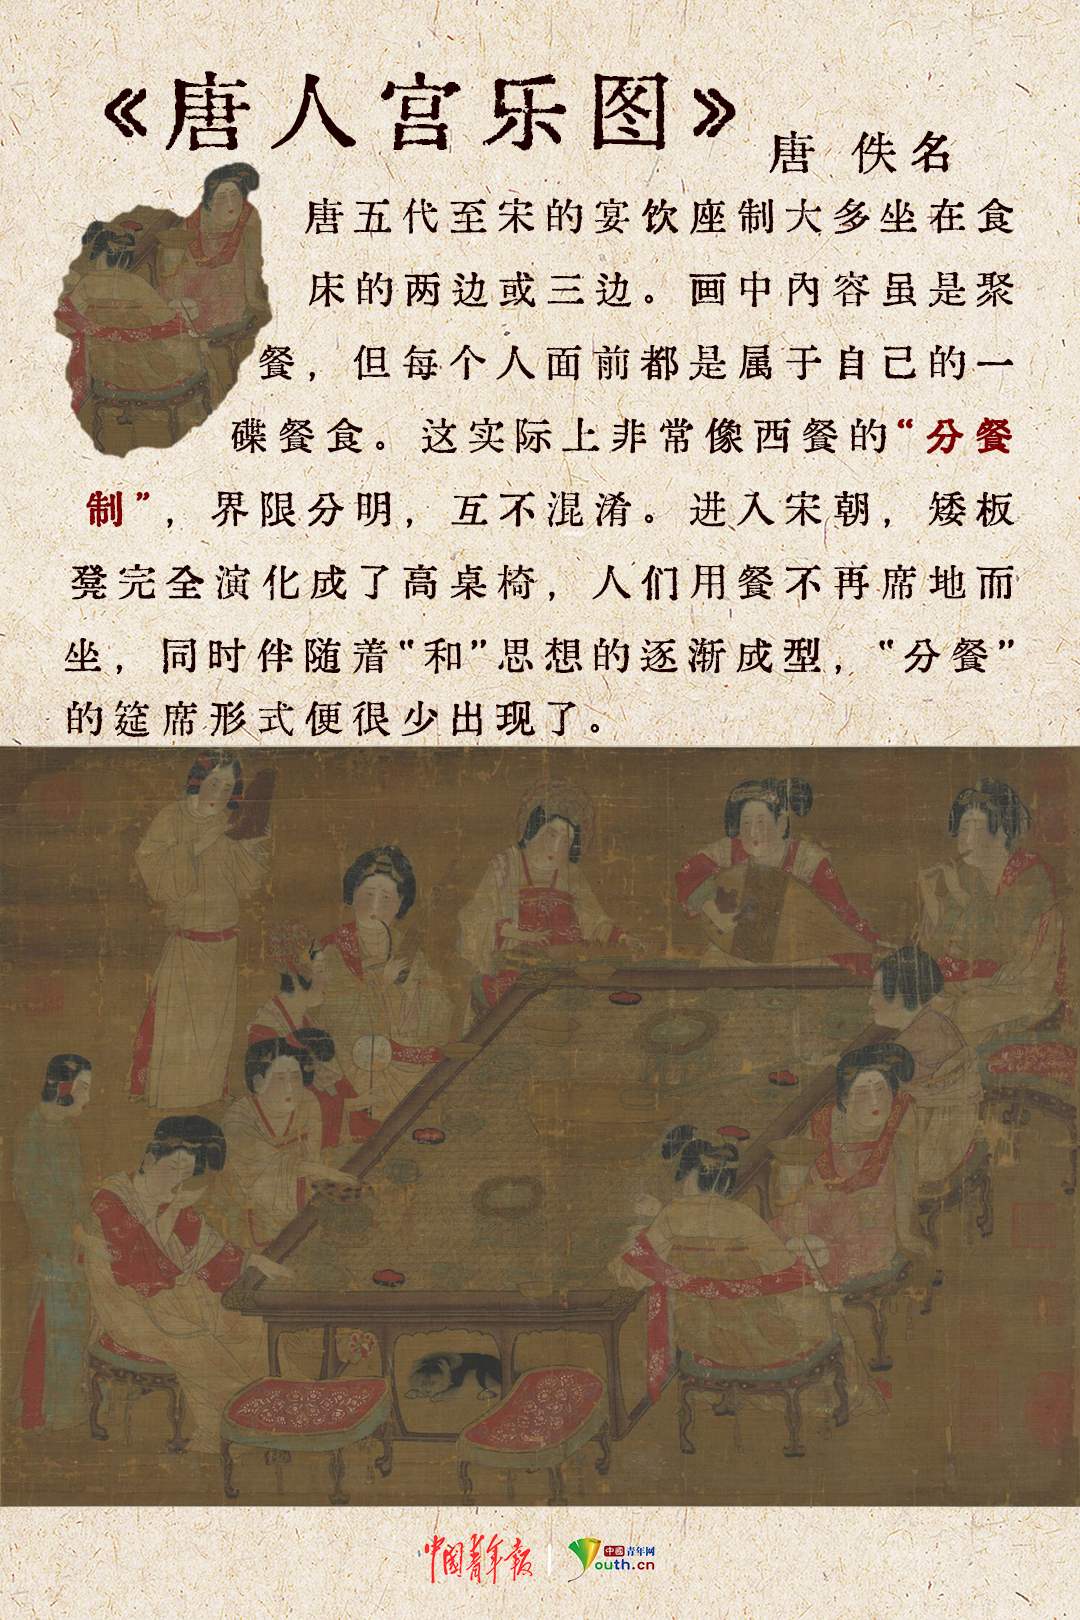 《唐人宫乐图》
唐 佚名
唐五代至宋的宴饮座制大多坐在食
床的两边或三边。画中内容虽是聚
餐，但每个人面前都是属于自己的一
碟餐食。这实际上非常像西餐的“分餐
制”，界限分明，互不混淆。进入宋朝，矮板
凳完全演化成了高桌椅，人们用餐不再席地而
坐，同时伴随着“和”思想的逐渐成型，“分餐”
的筵席形式便很少出现了。
中国青年报
中國青年网
Youth.cn